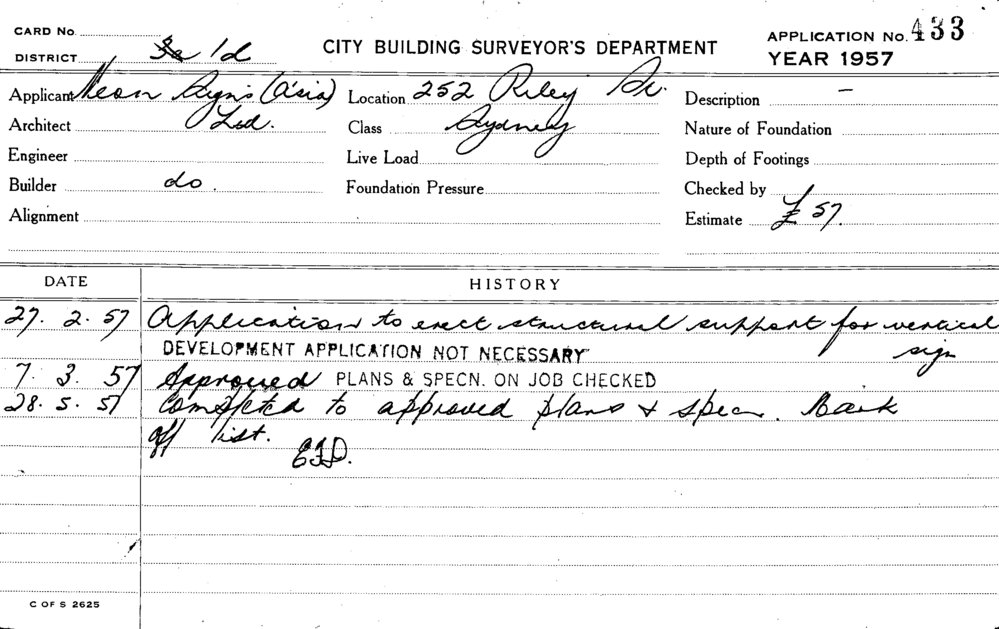 CARD No.
DISTRICT 1d
CITY BUILDING SURVEYOR'S DEPARTMENT
APPLICATION No. 433
YEAR 1957
Applicant Neon Signs (A'sia) Ltd.
Location 252 Riley St. Sydney
Description –
Architect
Class
Nature of Foundation
Engineer
Live Load
Depth of Footings
Builder do.
Foundation Pressure
Checked by
Alignment
Estimate £ 57.
DATE HISTORY
27. 2. 57 Application to erect structural support for vertical
sign
DEVELOPMENT APPLICATION NOT NECESSARY
7. 3. 57 Approved PLANS & SPECN. ON JOB CHECKED
28. 5. 57 Completed to approved plans & specn. Mark
off list.
C OF S 2625